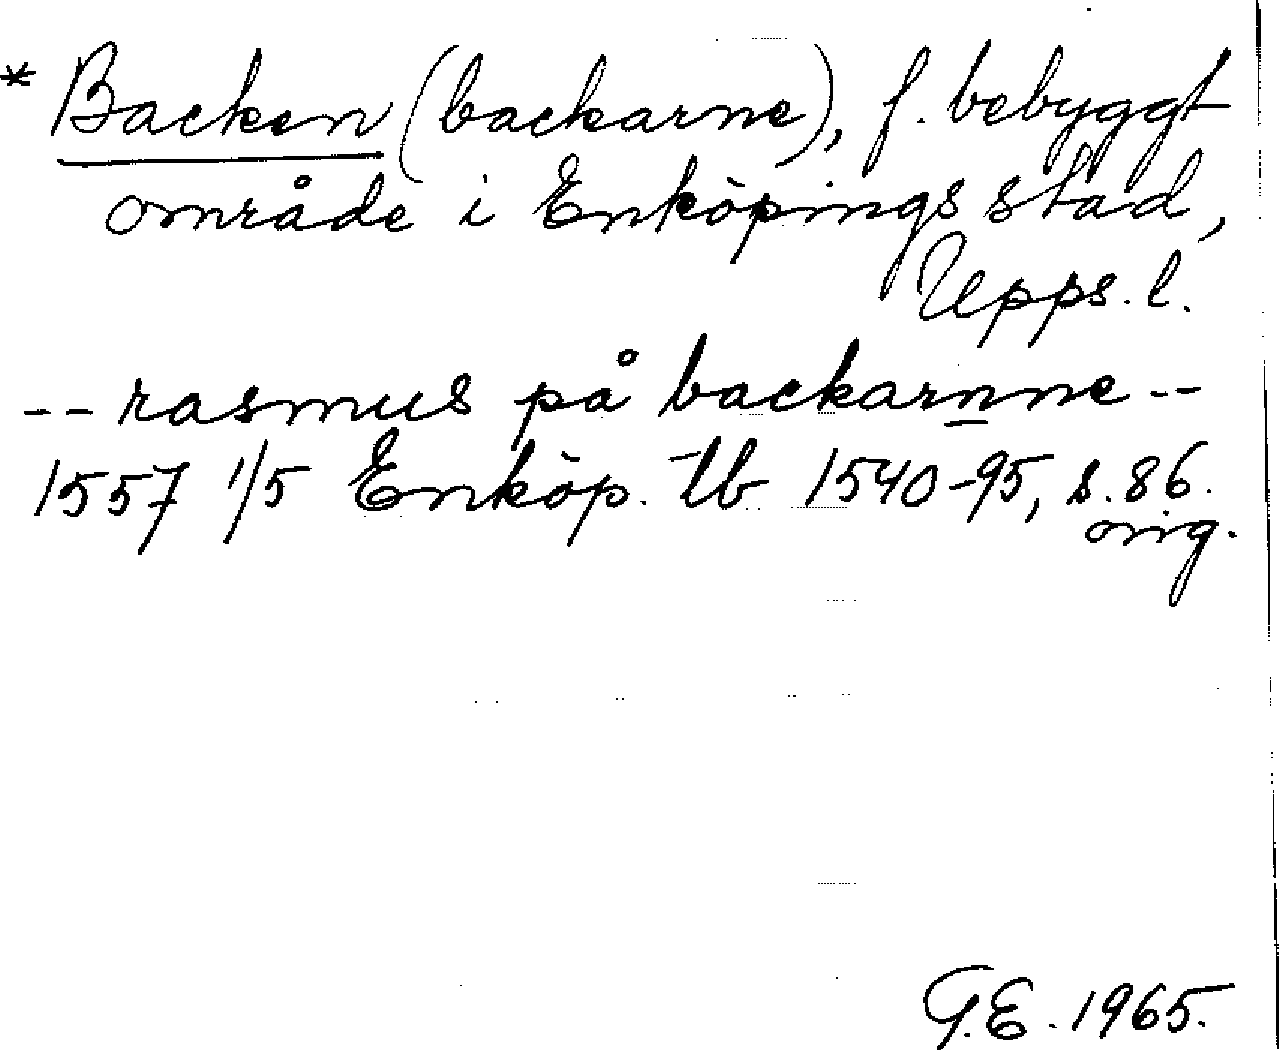 * Backen (backarne), f. bebyggt
område i Enköpings stad,
Upps. l.
-- rasmus på backarnne --
1557 1/5 Enköp. tb 1540-95, s. 86.
orig.
G.E. 1965.